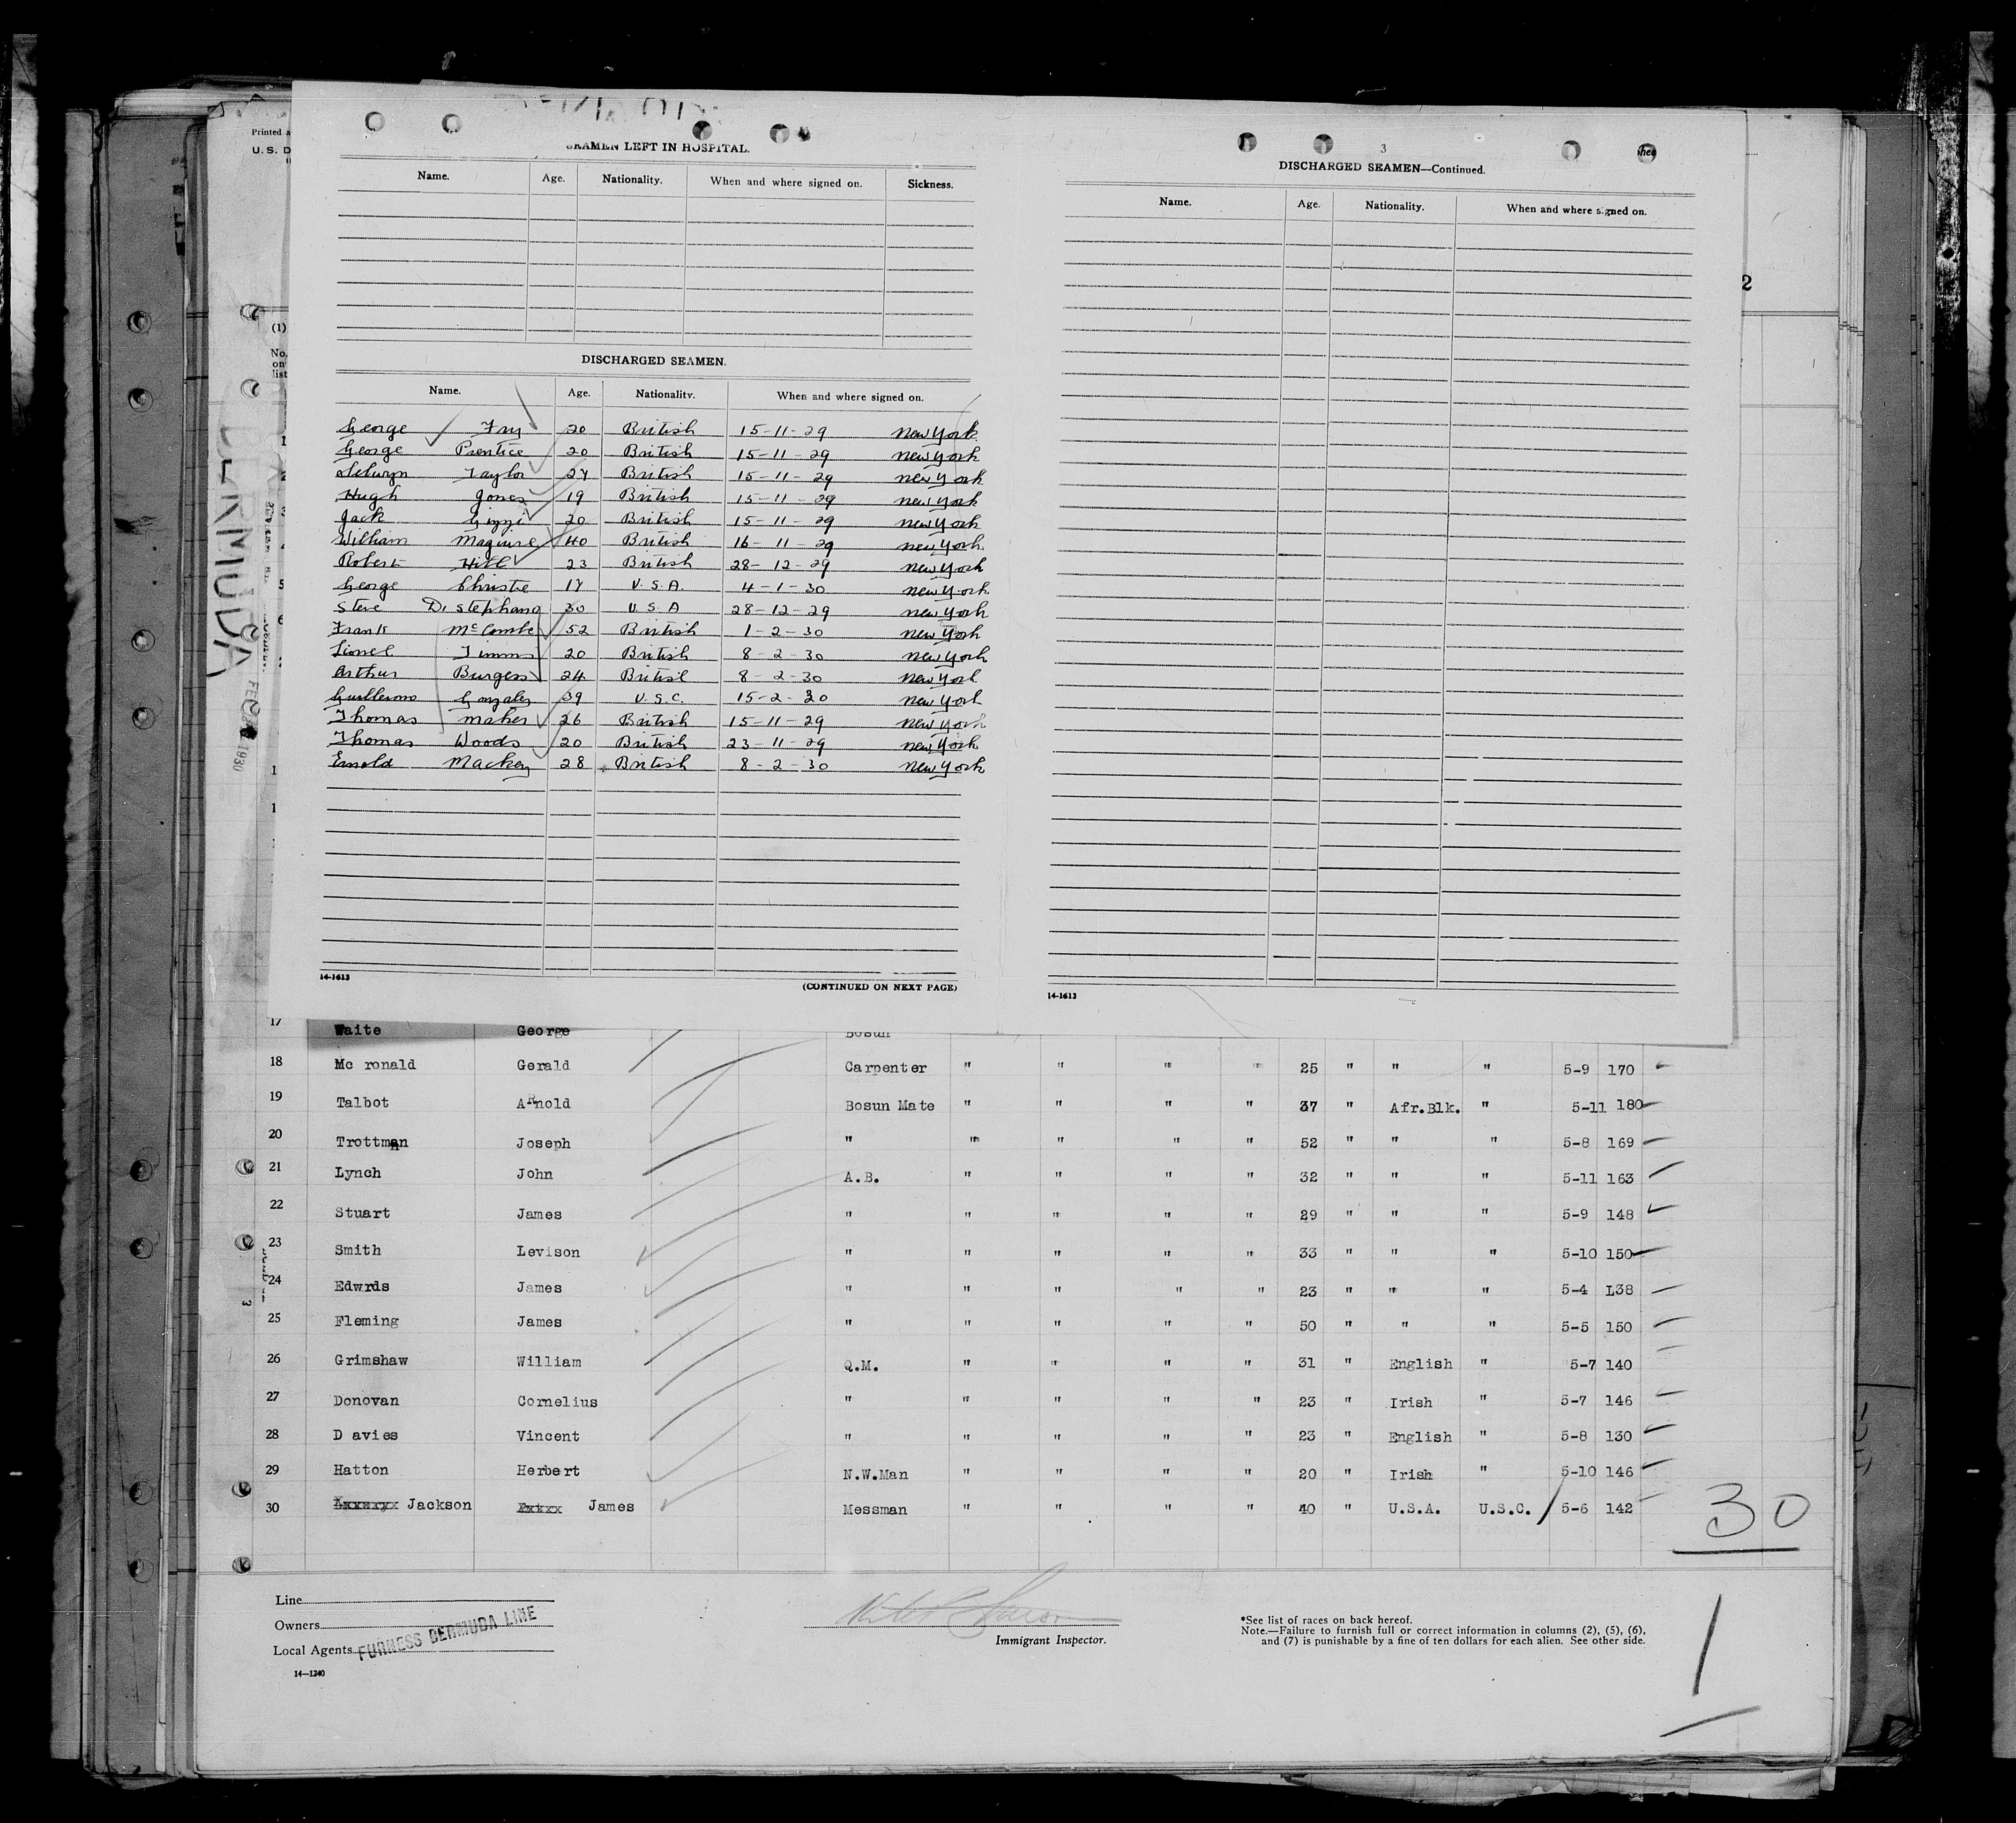 Printed a
U. S. D
SEAMEN LEFT IN HOSPITAL.
Name. Age. Nationality. When and where signed on. Sickness.
DISCHARGED SEAMEN.
Name. Age. Nationality. When and where signed on.
George Fry 20 British 15-11-29 New York
George Prentice 20 British 15-11-29 New York
Selwyn Taylor 27 British 15-11-29 New York
Hugh Jones 19 British 15-11-29 New York
Jack Gizzi 20 British 15-11-29 New York
William Maguire 40 British 16-11-29 New York
Robert Hill 23 British 28-12-29 New York
George Christie 17 U.S.A. 4-1-30 New York
Steve Di Stephano 30 U.S.A 28-12-29 New York
Frank McCombe 52 British 1-2-30 New York
Lionel Timms 20 British 8-2-30 New York
Arthur Burgess 24 British 8-2-30 New York
Guillermo Gonzales 39 U.S.C. 15-2-30 New York
Thomas Maher 26 British 15-11-29 New York
Thomas Woods 20 British 23-11-29 New York
Mackey 28 British 8-2-30 New York
14-1613
(CONTINUED ON NEXT PAGE)
3
DISCHARGED SEAMEN—Continued.
Name. Age. Nationality. When and where signed on.
14-1613
2
(1)
No.
on
list
BERMUDA
FEB 1930
17 Waite George Bosun
18 Mc ronald Gerald Carpenter " " " " 25 " " " 5-9 170
19 Talbot ARnold Bosun Mate " " " " 37 " Afr.Blk. " 5-11 180
20 Trottman Joseph " " " " " 52 " " " 5-8 169
21 Lynch John A.B. " " " " 32 " " " 5-11 163
22 Stuart James " " " " " 29 " " " 5-9 148
23 Smith Levison " " " " " 33 " " " 5-10 150
24 Edwrds James " " " " " 23 " " " 5-4 L38
25 Fleming James " " " " " 50 " " " 5-5 150
26 Grimshaw William Q.M. " " " " 31 " English " 5-7 140
27 Donovan Cornelius " " " " " 23 " Irish " 5-7 146
28 D avies Vincent " " " " " 23 " English " 5-8 130
29 Hatton Herbert N.W.Man " " " " 20 " Irish " 5-10 146
30 Jackson James Messman " " " " 40 " U.S.A. U.S.C. 5-6 142
30
Line
Owners
Local Agents FURNESS BERMUDA LINE
14—1240
Immigrant Inspector.
*See list of races on back hereof.
Note.—Failure to furnish full or correct information in columns (2), (5), (6),
and (7) is punishable by a fine of ten dollars for each alien. See other side.
1